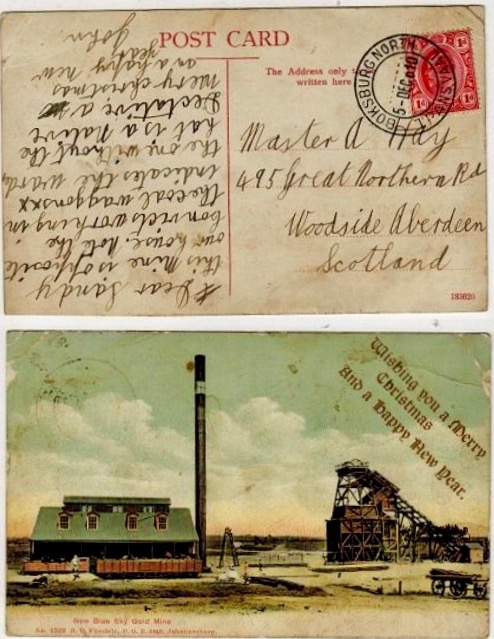 POST CARD
The Address only
written here
BOKSBURG NORTH
5-DEC
TRANSVAAL
1d 1d
Master A Hay
495 Great Northern Rd
Woodside Aberdeen
Scotland
183620
Dear Sandy
this mine is opposite
our house. Note the
convicts working in
the coal waggons xx
indicates the ward,
the one without the
hat is a native
a
Merry christmas
an a happy new
year
John
Wishing you a Merry
Christmas
And a Happy New Year.
New Blue Sky Gold Mine
Johannesburg.